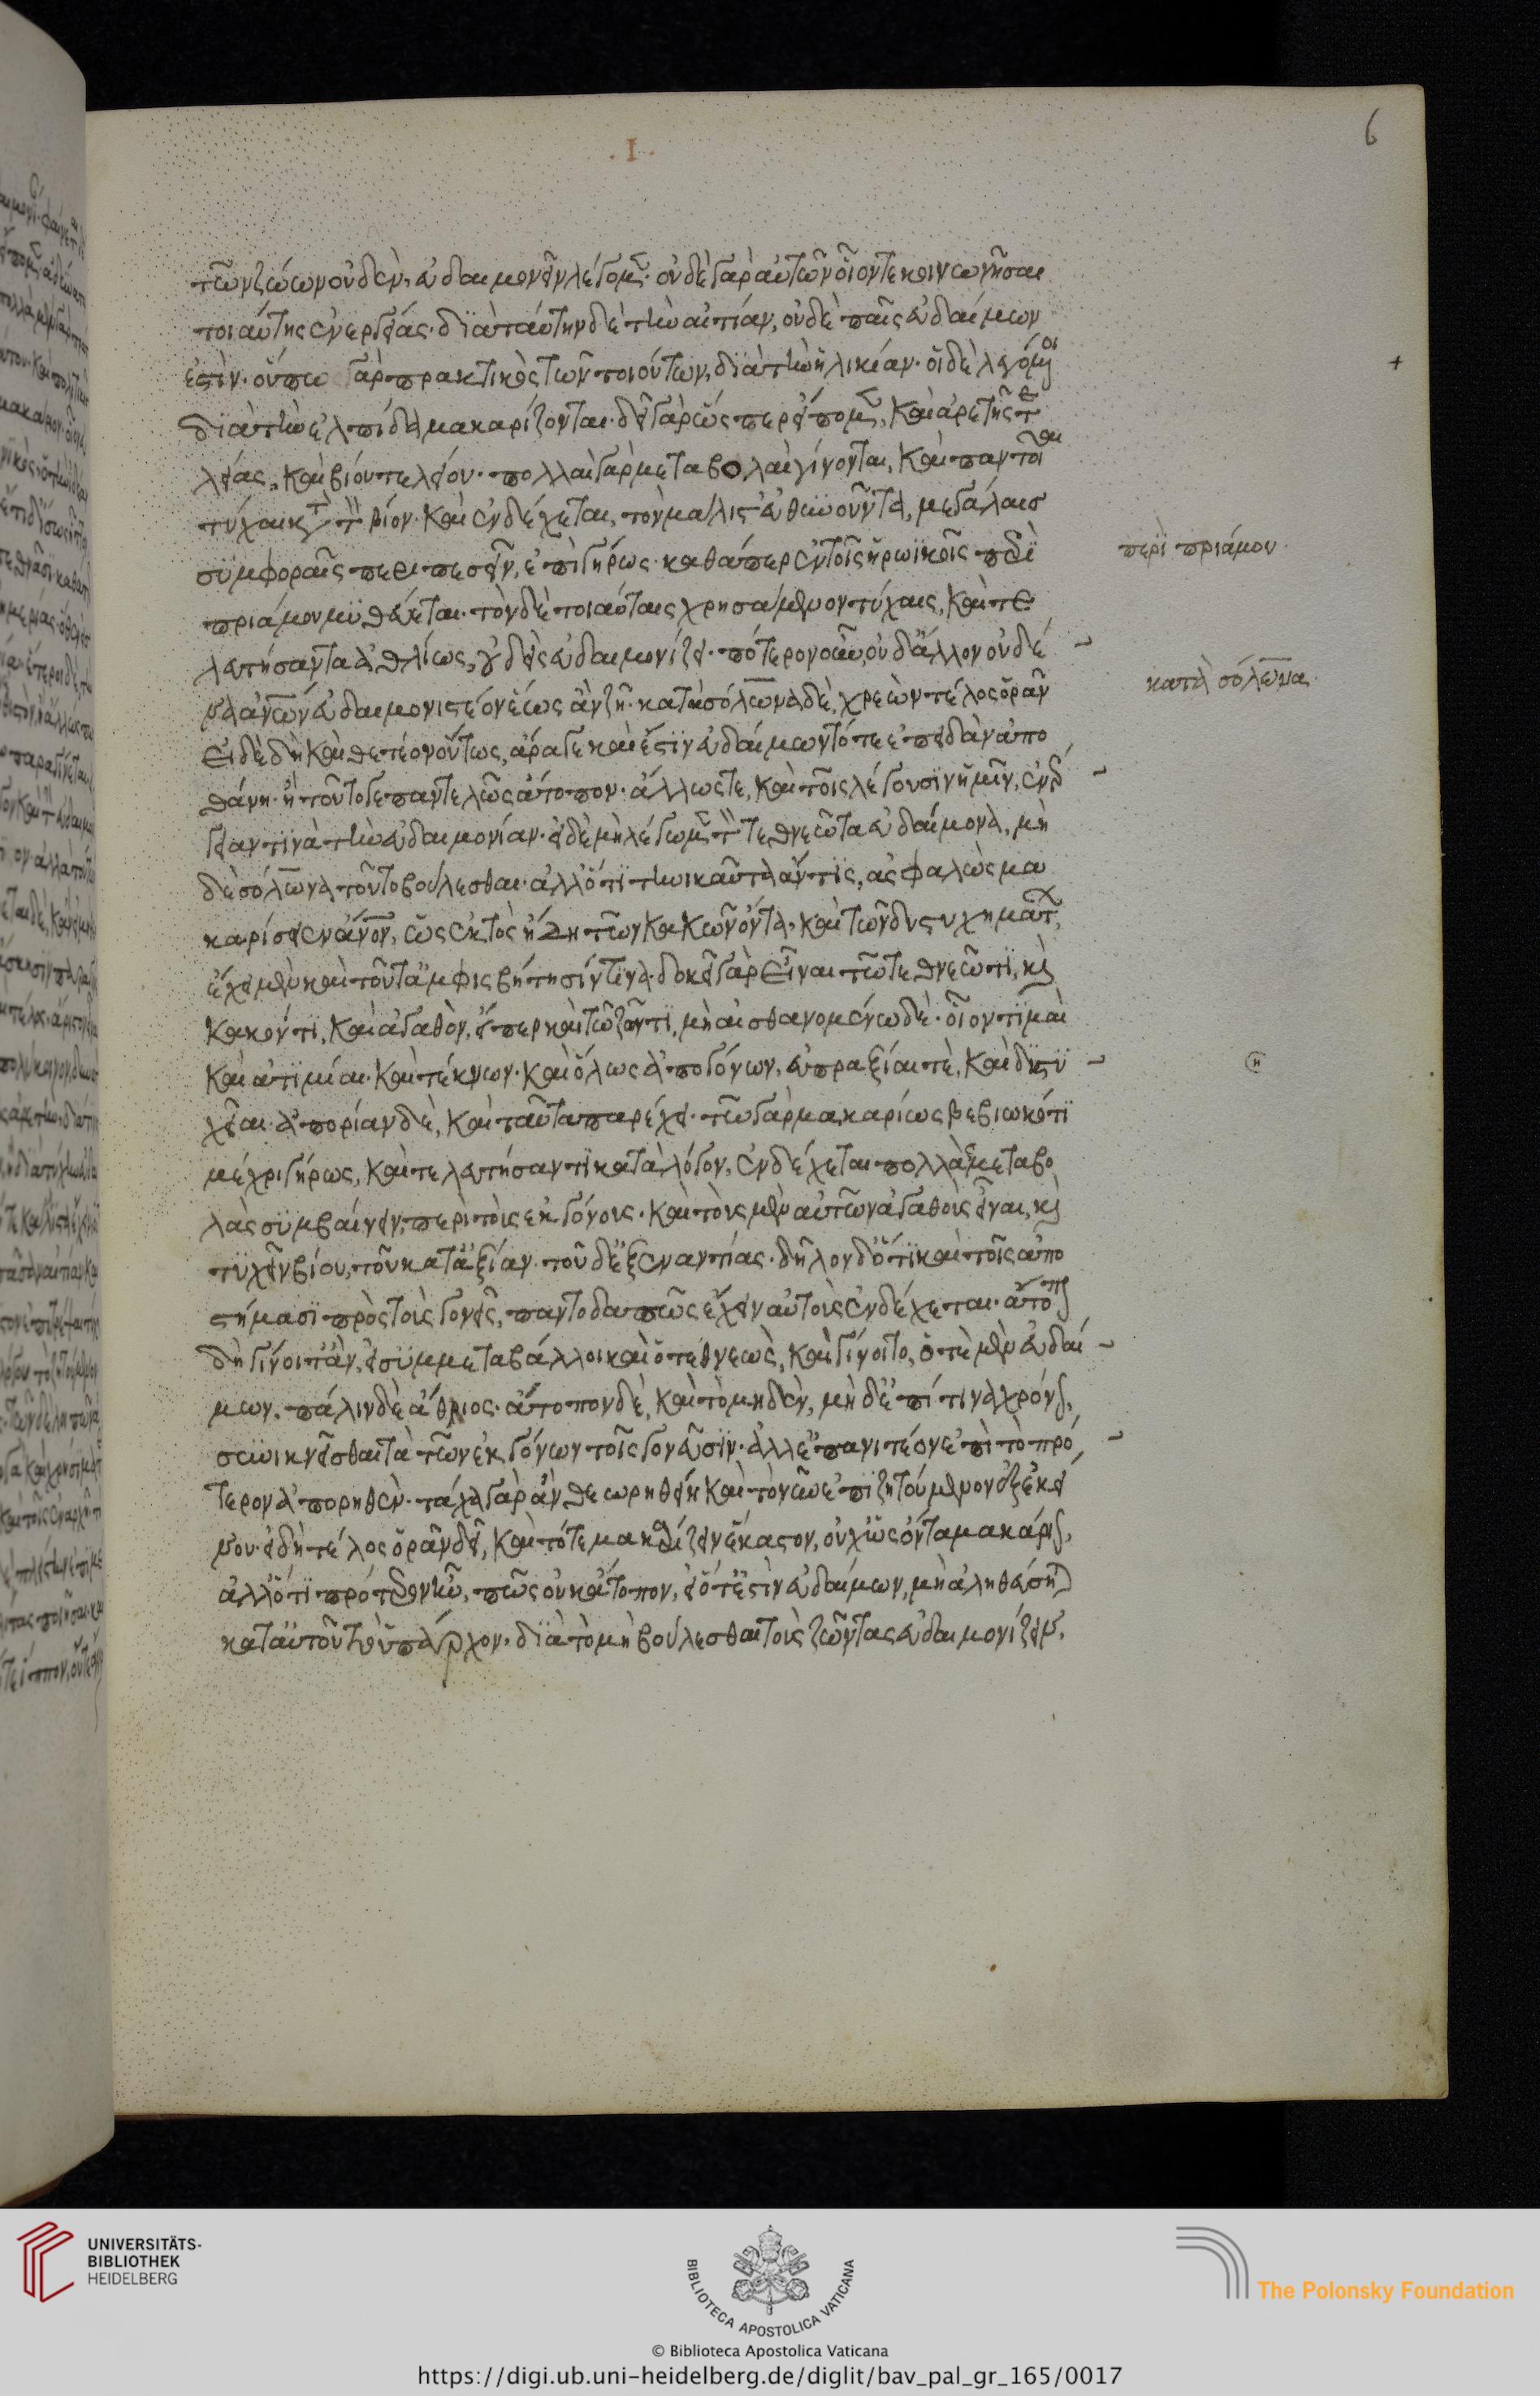 .I.
6
τῶν ζώων οὐδὲν, εὐδαιμονεῖν λέγομεν· οὐδὲ γὰρ αὐτῶν οἷόν τε κοινωνῆσαι
τοιαύτης ἐνεργείας· διὰ ταύτην δὲ τὴν αἰτίαν, οὐδὲ παῖς εὐδαίμων
ἐστίν· οὔπω γὰρ πρακτικὸς τῶν τοιούτων, διὰ τὴν ἡλικίαν· οἱ δὲ λεγόμενοι
διὰ τὴν ἐλπίδα μακαρίζονται· δεῖ γὰρ ὥσπερ εἴπομεν, καὶ ἀρετῆς τε
λείας, καὶ βίου τελείου· πολλαὶ γὰρ μεταβολαὶ γίνονται, καὶ παντοῖαι
τύχαι κατὰ τὸν βίον· καὶ ἐνδέχεται, τὸν μάλιστ' εὐθηνοῦντα, μεγάλαις
συμφοραῖς περιπεσεῖν, ἐπὶ γήρως· καθάπερ ἐν τοῖς ἡρωϊκοῖς περὶ
περὶ πριάμου·
πριάμου μυθεύεται· τὸν δὲ τοιαύταις χρησάμενον τύχαις, καὶ τε
λευτήσαντα ἀθλίως, οὐδεὶς εὐδαιμονίζει· πότερον οὖν, οὐδ' ἄλλον οὐδέ
κατὰ σόλωνα·
να ἀνῶν εὐδαιμονιστέον ἕως ἂν ζῇ· κατὰ σόλωνα δὲ, χρεὼν τέλος ὁρᾶν
εἰ δὲ δὴ καὶ θετέον οὕτως, ἆρά γε καὶ ἔστιν εὐδαίμων τότε ἐπειδὰν ἀπο
θάνῃ· ἢ τοῦτό γε παντελῶς ἄτοπον· ἄλλως τε, καὶ τοῖς λέγουσιν ἡμῖν, ἐνέρ
γειαν τινὰ τὴν εὐδαιμονίαν· εἰ δὲ μὴ λέγωμεν τὸν τεθνεῶτα εὐδαίμονα, μη
δὲ σόλωνα τοῦτο βούλεσθαι· ἀλλ' ὅτι τηνικαῦτα ἄν τις, ἀσφαλῶς μα
καρίσειεν ἄνον, ὡς ἐκτὸς ἤδη τῶν κακῶν ὄντα· καὶ τῶν δυστυχημάτων,
ἔχει μὲν καὶ τοῦτ' ἀμφισβήτησίν τινα· δοκεῖ γὰρ εἶναι τῷ τεθνεῶτι, καὶ
κακόν τι, καὶ ἀγαθὸν, εἴπερ καὶ τῷ ζῶντι, μὴ αἰσθανομένῳ δέ· οἷον τιμαὶ
καὶ ἀτιμίαι· καὶ τέκνων· καὶ ὅλως ἀπογόνων, εὐπραξίαι τὲ, καὶ δυστυ
χίαι· ἀπορίαν δὲ, καὶ ταῦτα παρέχει· τῷ γὰρ μακαρίως βεβιωκότι
μέχρι γήρως, καὶ τελευτήσαντι κατὰ λόγον, ἐνδέχεται πολλὰς μεταβο
λὰς συμβαίνειν, περὶ τοὺς ἐκγόνους· καὶ τοὺς μὲν αὐτῶν ἀγαθοὺς εἶναι, καὶ
τυχεῖν βίου, τοῦ κατ' ἀξίαν· τοὺς δ' ἐξ ἐναντίας· δῆλον δ' ὅτι καὶ τοῖς ἀπο
στήμασι πρὸς τοὺς γονεῖς, παντοδαπῶς ἔχειν αὐτοὺς ἐνδέχεται· ἄτοπον
δὴ γίνοιτ' ἂν, εἰ συμμεταβάλλοι καὶ ὁ τεθνεὼς, καὶ γίνοιτο, ὁτὲ μὲν εὐδαί
μων, πάλιν δὲ ἄθλιος· ἄτοπον δὲ, καὶ τὸ μηδὲν, μὴ δ' ἐπί τινα χρόνον,
συνικνεῖσθαι τὰ τῶν ἐκγόνων τοῖς γονεῦσιν· ἀλλ' ἐπανιτέον ἐπὶ τὸ πρό
τερον ἀπορηθέν· τάχα γὰρ ἂν θεωρηθείη καὶ τὸ νῦν ἐπιζητούμενον ἐξ ἐκεί
νου· εἰ δὴ τέλος ὁρᾶν δεῖ, καὶ τότε μακαρίζειν ἕκαστον, οὐχ ὡς ὄντα μακάριον,
ἀλλ' ὅτι πρότερον ἦν, πῶς οὐκ ἄτοπον, εἰ ὅτ' ἔστιν εὐδαίμων, μὴ ἀληθεύσεται
κατ' αὐτοῦ τὸ ὑπάρχον· διὰ τὸ μὴ βούλεσθαι τοὺς ζῶντας εὐδαιμονίζειν,
UNIVERSITÄTS-
BIBLIOTHEK
HEIDELBERG
BIBLIOTECA APOSTOLICA VATICANA
The Polonsky Foundation
© Biblioteca Apostolica Vaticana
https://digi.ub.uni-heidelberg.de/diglit/bav_pal_gr_165/0017